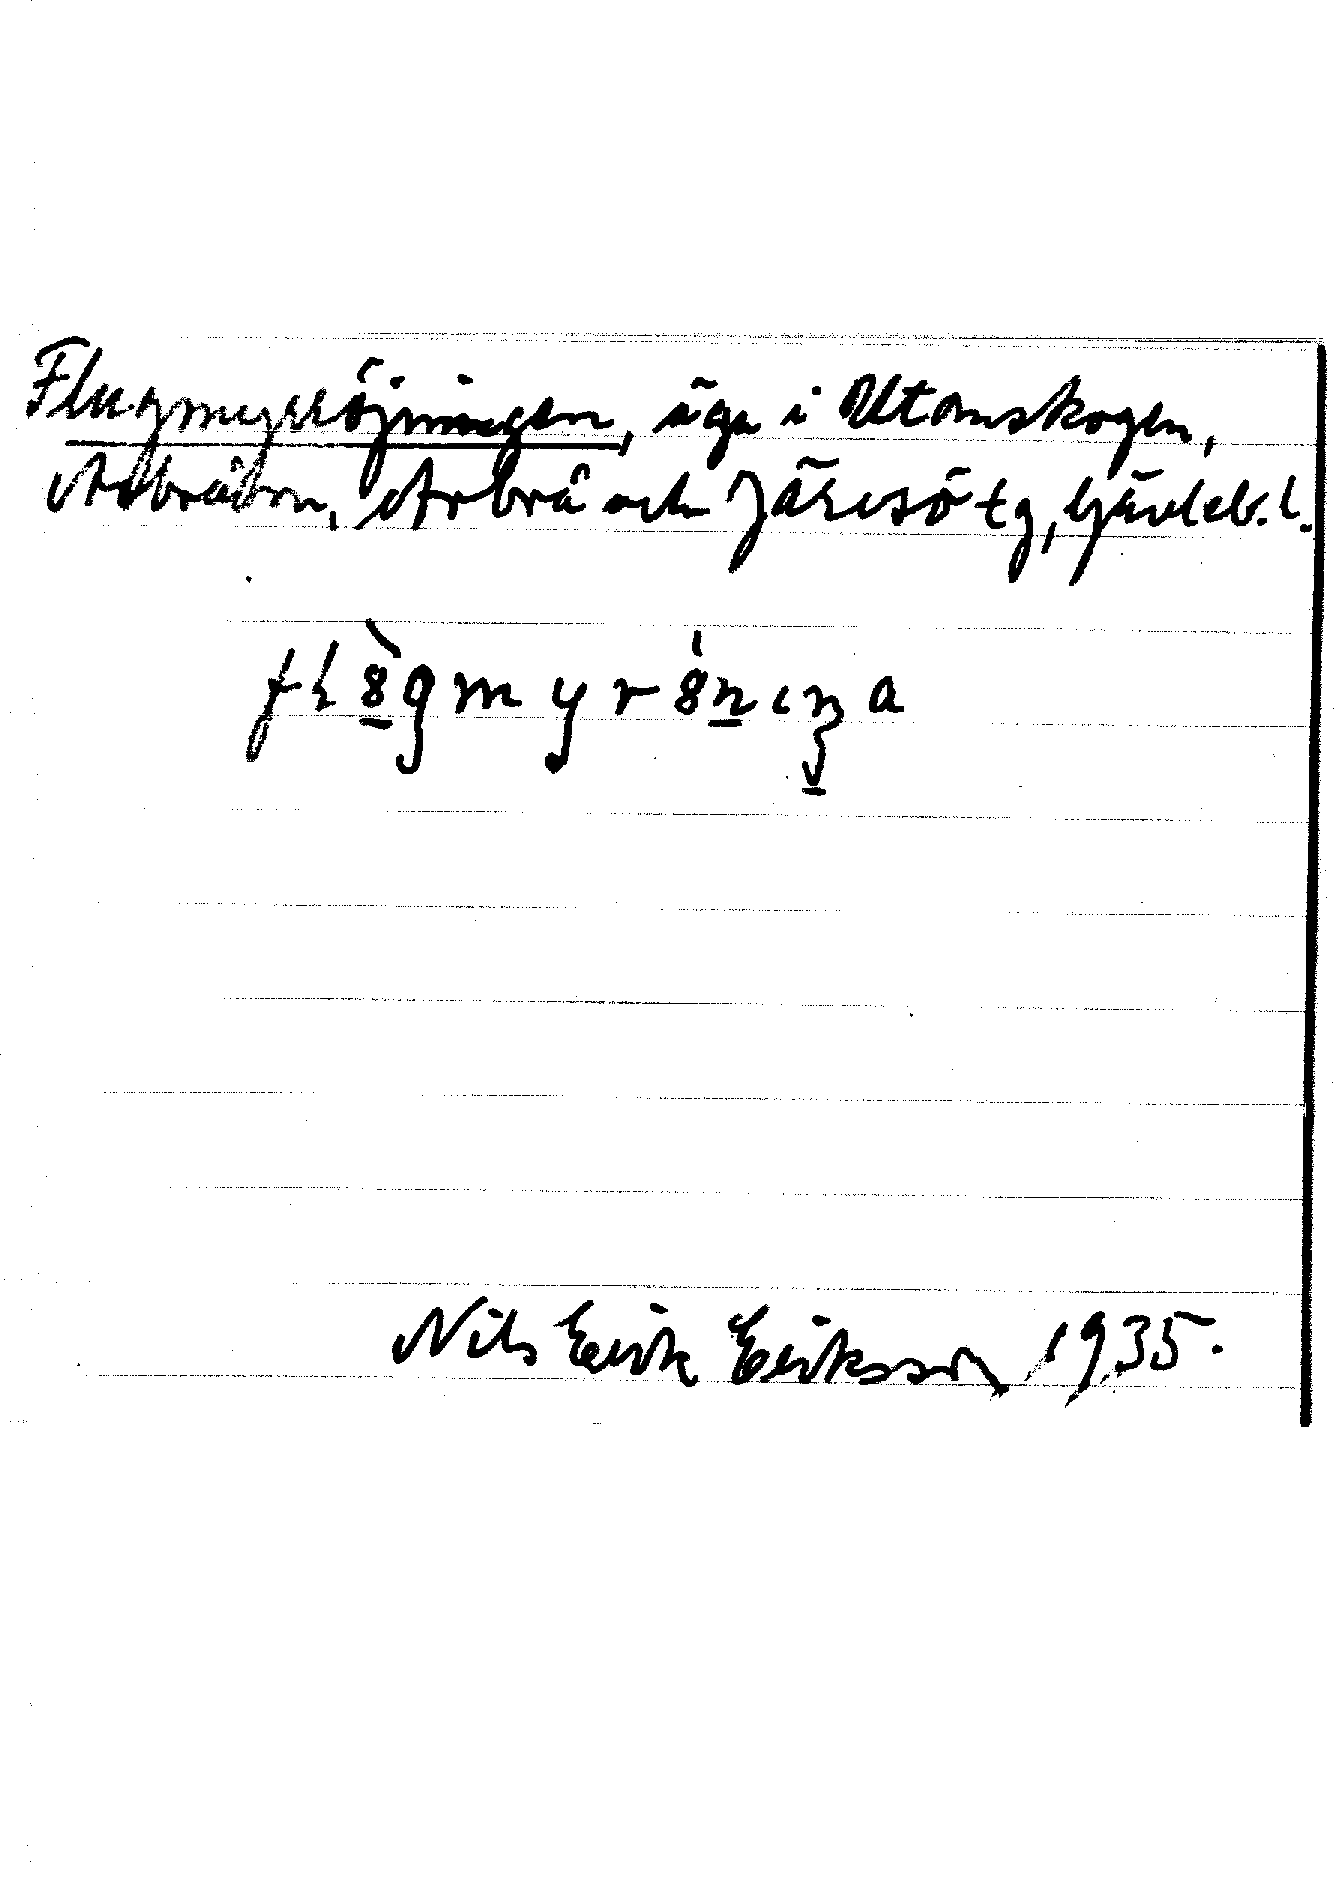 Flugmyrröjningen, äga i Utomskogen,
Arbråbon, Arbrå och Järvsö tg, Gävleb. l.
flo̱gmyrönıŋa
Nils Erik Eriksson 1935.